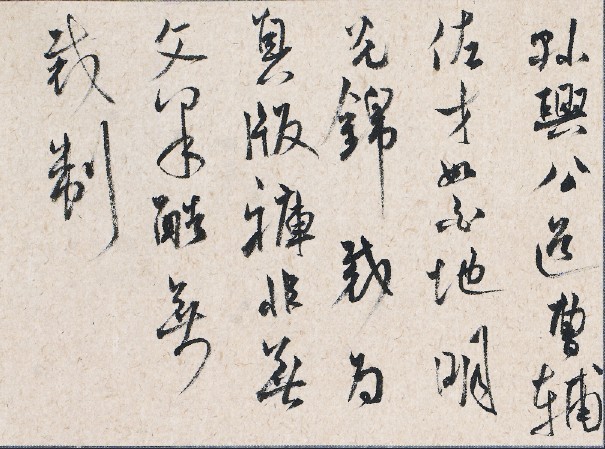 孫興公道曹輔
佐才如白地明
光錦裁为
負版褲非無
文采酷無
裁制